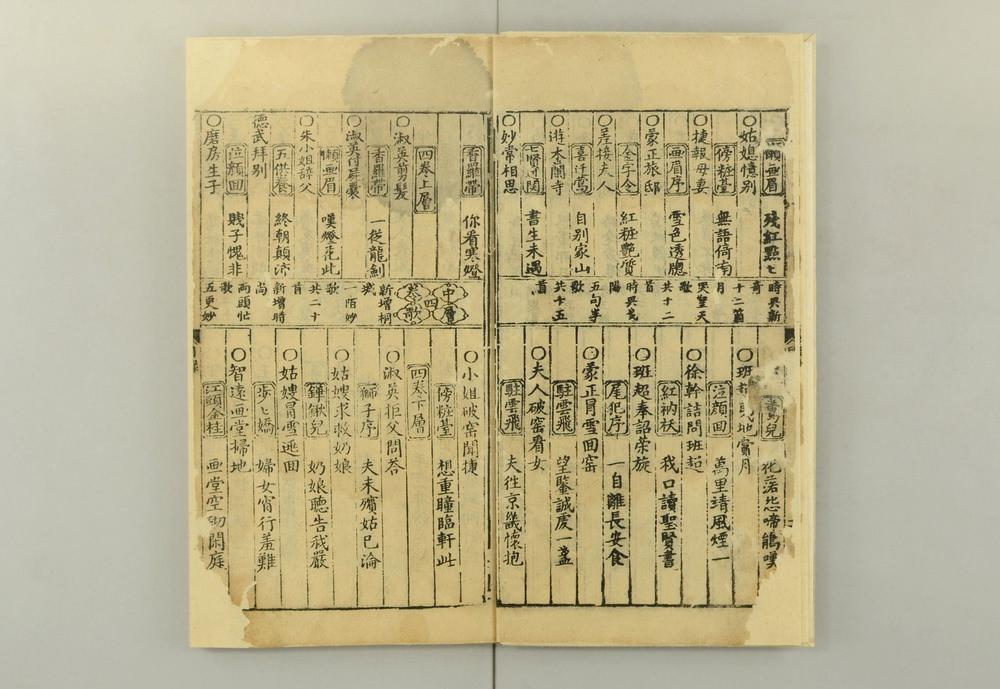 懶画眉 殘紅點七
○姑媳憶別
傍粧臺 無語倚南
○捷報母妻
画眉序 雪色透牕
○蒙正旅邸
金字令 紅粧艷質
○差接夫人
喜迁鶯 自別家山
七賢过関 書生未遇
○妙常相思
時興新
奇
十二箇
月
哭皇天
歌
共十二
首
時興
陽
五句半
歌
共十五
首
花落恐啼鵑嘆
泣顔回 萬里靖風煙一
○徐幹詰問班超
紅衲袄 我口讀聖賢書
○班超奉詔榮旋
尾犯序 一自離長安食
○蒙正冐雪回窑
駐雲飛 望鑒誠虔一盞
○夫人破窑看女
駐雲飛 夫往京畿懷抱
香羅帶 你看寒燈
四卷上層
○淑英剪髮
香羅帶 一從龍劍
○淑英付屍囊
懶画眉 嘆燈花此
○朱小姐辞父
五供養 終朝顛沛
德武拜別
泣顔回 賤子愧非
○磨房生子
中層
四
新增桐
城
一陌妙
歌
共二十
首
新增時
尚
两頭忙
歌
五更妙
○小姐破窑聞捷
傍粧臺 想重瞳臨軒此
四卷下層
○淑英拒父問荅
獅子序 夫未殯姑已淪
○姑嫂求救奶娘
鏵鍬兒 奶娘聽告我嚴
○姑嫂冐雪逃回
步七嬌 婦女宵行羞難
○智遠画堂掃地
江頭金桂 画堂空砌閑庭